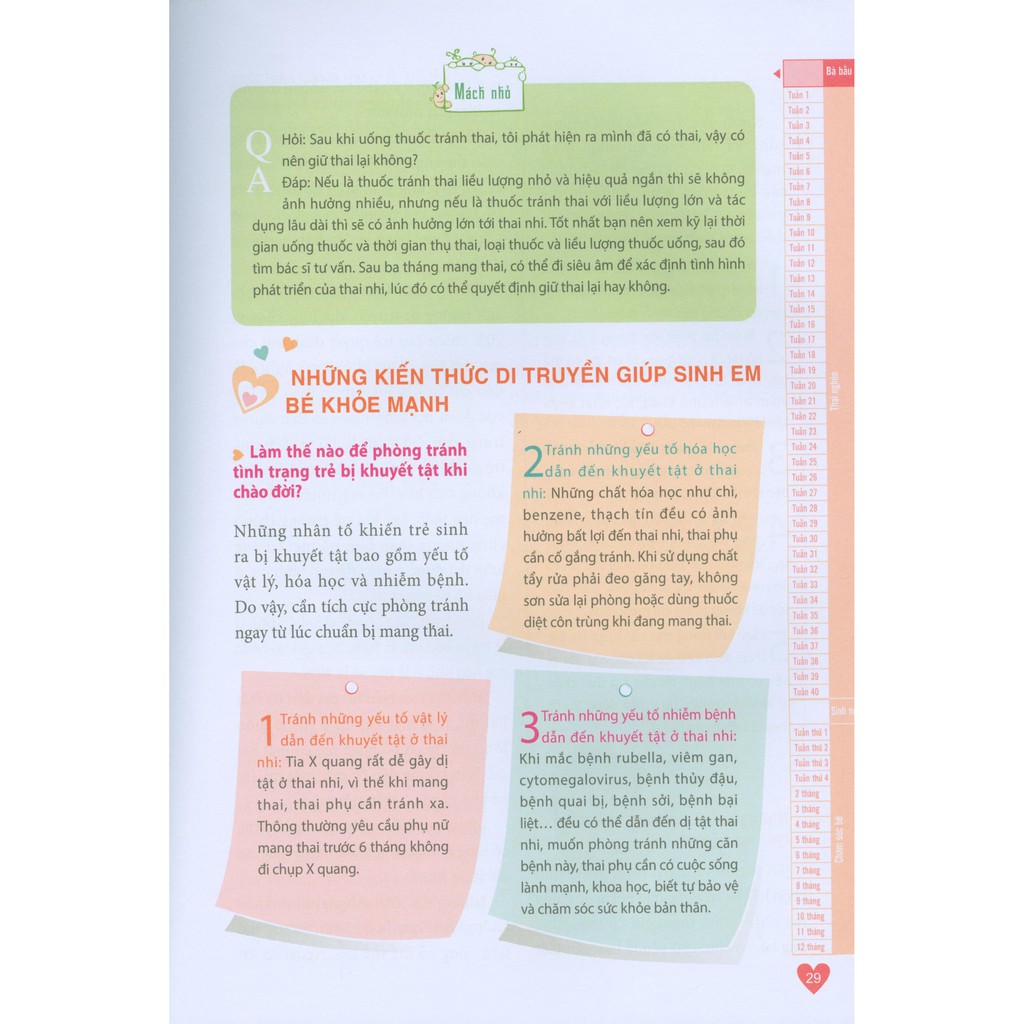 Mách nhỏ
Q
A
Hỏi: Sau khi uống thuốc tránh thai, tôi phát hiện ra mình đã có thai, vậy có
nên giữ thai lại không?
Đáp: Nếu là thuốc tránh thai liều lượng nhỏ và hiệu quả ngắn thì sẽ không
ảnh hưởng nhiều, nhưng nếu là thuốc tránh thai với liều lượng lớn và tác
dụng lâu dài thì sẽ có ảnh hưởng lớn tới thai nhi. Tốt nhất bạn nên xem kỹ lại thời
gian uống thuốc và thời gian thụ thai, loại thuốc và liều lượng thuốc uống, sau đó
tìm bác sĩ tư vấn. Sau ba tháng mang thai, có thể đi siêu âm để xác định tình hình
phát triển của thai nhi, lúc đó có thể quyết định giữ thai lại hay không.
NHỮNG KIẾN THỨC DI TRUYỀN GIÚP SINH EM
BÉ KHỎE MẠNH
Làm thế nào để phòng tránh
tình trạng trẻ bị khuyết tật khi
chào đời?
Những nhân tố khiến trẻ sinh
ra bị khuyết tật bao gồm yếu tố
vật lý, hóa học và nhiễm bệnh.
Do vậy, cần tích cực phòng tránh
ngay từ lúc chuẩn bị mang thai.
1 Tránh những yếu tố vật lý
dẫn đến khuyết tật ở thai
nhi: Tia X quang rất dễ gây dị
tật ở thai nhi, vì thế khi mang
thai, thai phụ cần tránh xa.
Thông thường yêu cầu phụ nữ
mang thai trước 6 tháng không
đi chụp X quang.
2 Tránh những yếu tố hóa học
dẫn đến khuyết tật ở thai
nhi: Những chất hóa học như chì,
benzene, thạch tín đều có ảnh
hưởng bất lợi đến thai nhi, thai phụ
cần cố gắng tránh. Khi sử dụng chất
tẩy rửa phải đeo găng tay, không
sơn sửa lại phòng hoặc dùng thuốc
diệt côn trùng khi đang mang thai.
3 Tránh những yếu tố nhiễm bệnh
dẫn đến khuyết tật ở thai nhi:
Khi mắc bệnh rubella, viêm gan,
cytomegalovirus, bệnh thủy đậu,
bệnh quai bị, bệnh sởi, bệnh bại
liệt... đều có thể dẫn đến dị tật thai
nhi, muốn phòng tránh những căn
bệnh này, thai phụ cần có cuộc sống
lành mạnh, khoa học, biết tự bảo vệ
và chăm sóc sức khỏe bản thân.
Bà bầu
Tuần 1
Tuần 2
Tuần 3
Tuần 4
Tuần 5
Tuần 6
Tuần 7
Tuần 8
Tuần 9
Tuần 10
Tuần 11
Tuần 12
Tuần 13
Tuần 14
Tuần 15
Tuần 16
Tuần 17
Tuần 18
Tuần 19
Tuần 20
Tuần 21
Tuần 22
Tuần 23
Tuần 24
Tuần 25
Tuần 26
Tuần 27
Tuần 28
Tuần 29
Tuần 30
Tuần 31
Tuần 32
Tuần 33
Tuần 34
Tuần 35
Tuần 36
Tuần 37
Tuần 38
Tuần 39
Tuần 40
Thai nghén
Sinh
Tuần thứ 1
Tuần thứ 2
Tuần thứ 3
Tuần thứ 4
2 tháng
3 tháng
4 tháng
5 tháng
6 tháng
7 tháng
8 tháng
9 tháng
10 tháng
11 tháng
12 tháng
Chăm sóc bé
29